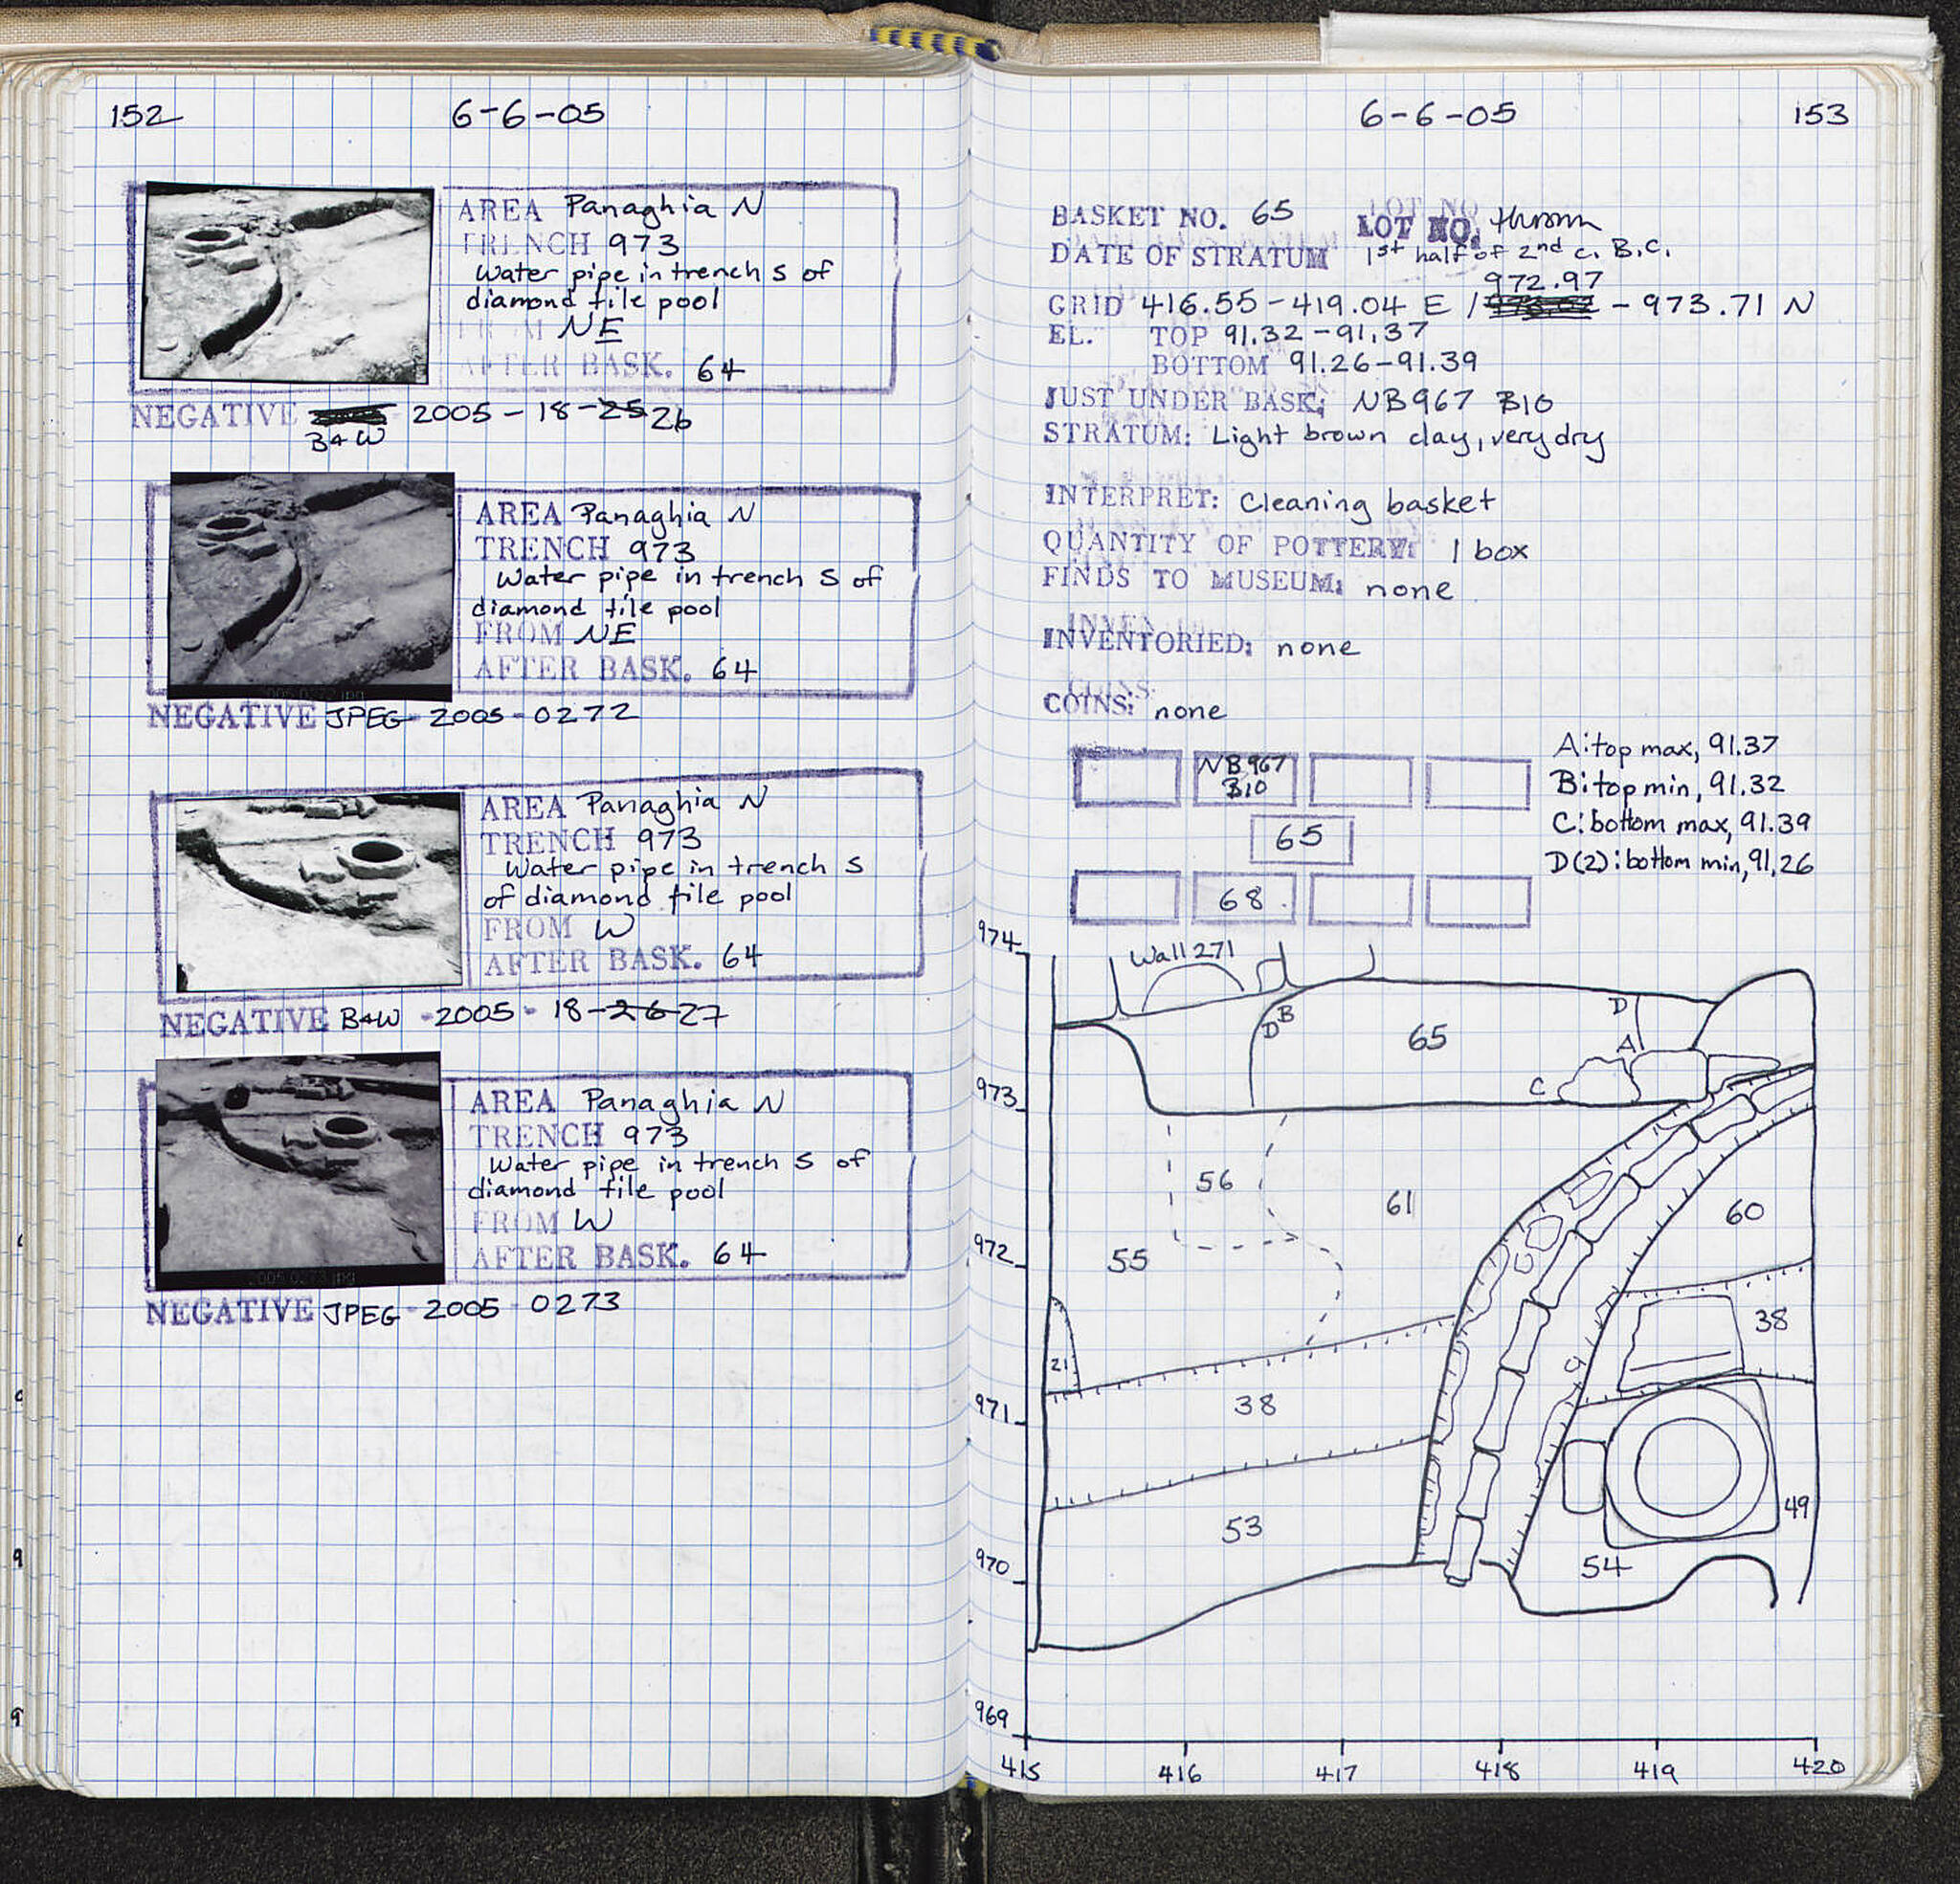 152
6-6-05
AREA Panaghia N
TRENCH 973
Water pipe in trench S of
diamond tile pool
FROM NE
AFTER BASK. 64
NEGATIVE B+W 2005-18-25 26
AREA Panaghia N
TRENCH 973
Water pipe in trench S of
diamond tile pool
FROM NE
AFTER BASK. 64
2005 0272.jpg
NEGATIVE JPEG-2005-0272
AREA Panaghia N
TRENCH 973
Water pipe in trench S
of diamond tile pool
FROM W
AFTER BASK. 64
NEGATIVE B+W -2005- 18-26 27
AREA Panaghia N
TRENCH 973
Water pipe in trench S of
diamond tile pool
FROM W
AFTER BASK. 64
2005 0273.jpg
NEGATIVE JPEG-2005-0273
6-6-05
153
BASKET NO. 65 LOT NO. thrown
DATE OF STRATUM 1st half of 2nd c. B.C.
972.97
GRID 416.55-419.04 E / - 973.71 N
EL. TOP 91.32-91.37
BOTTOM 91.26-91.39
JUST UNDER BASK: NB967 B10
STRATUM: Light brown clay, very dry
INTERPRET: Cleaning basket
QUANTITY OF POTTERY: 1 box
FINDS TO MUSEUM: none
INVENTORIED: none
COINS: none
NB967
B10
65
68
A: top max, 91.37
B: top min, 91.32
C: bottom max, 91.39
D(2): bottom min, 91.26
974
Wall 271
B
D
65
D
A
C
973
56
61
60
972
55
38
21
971
38
49
53
54
970
969
415 416 417 418 419 420